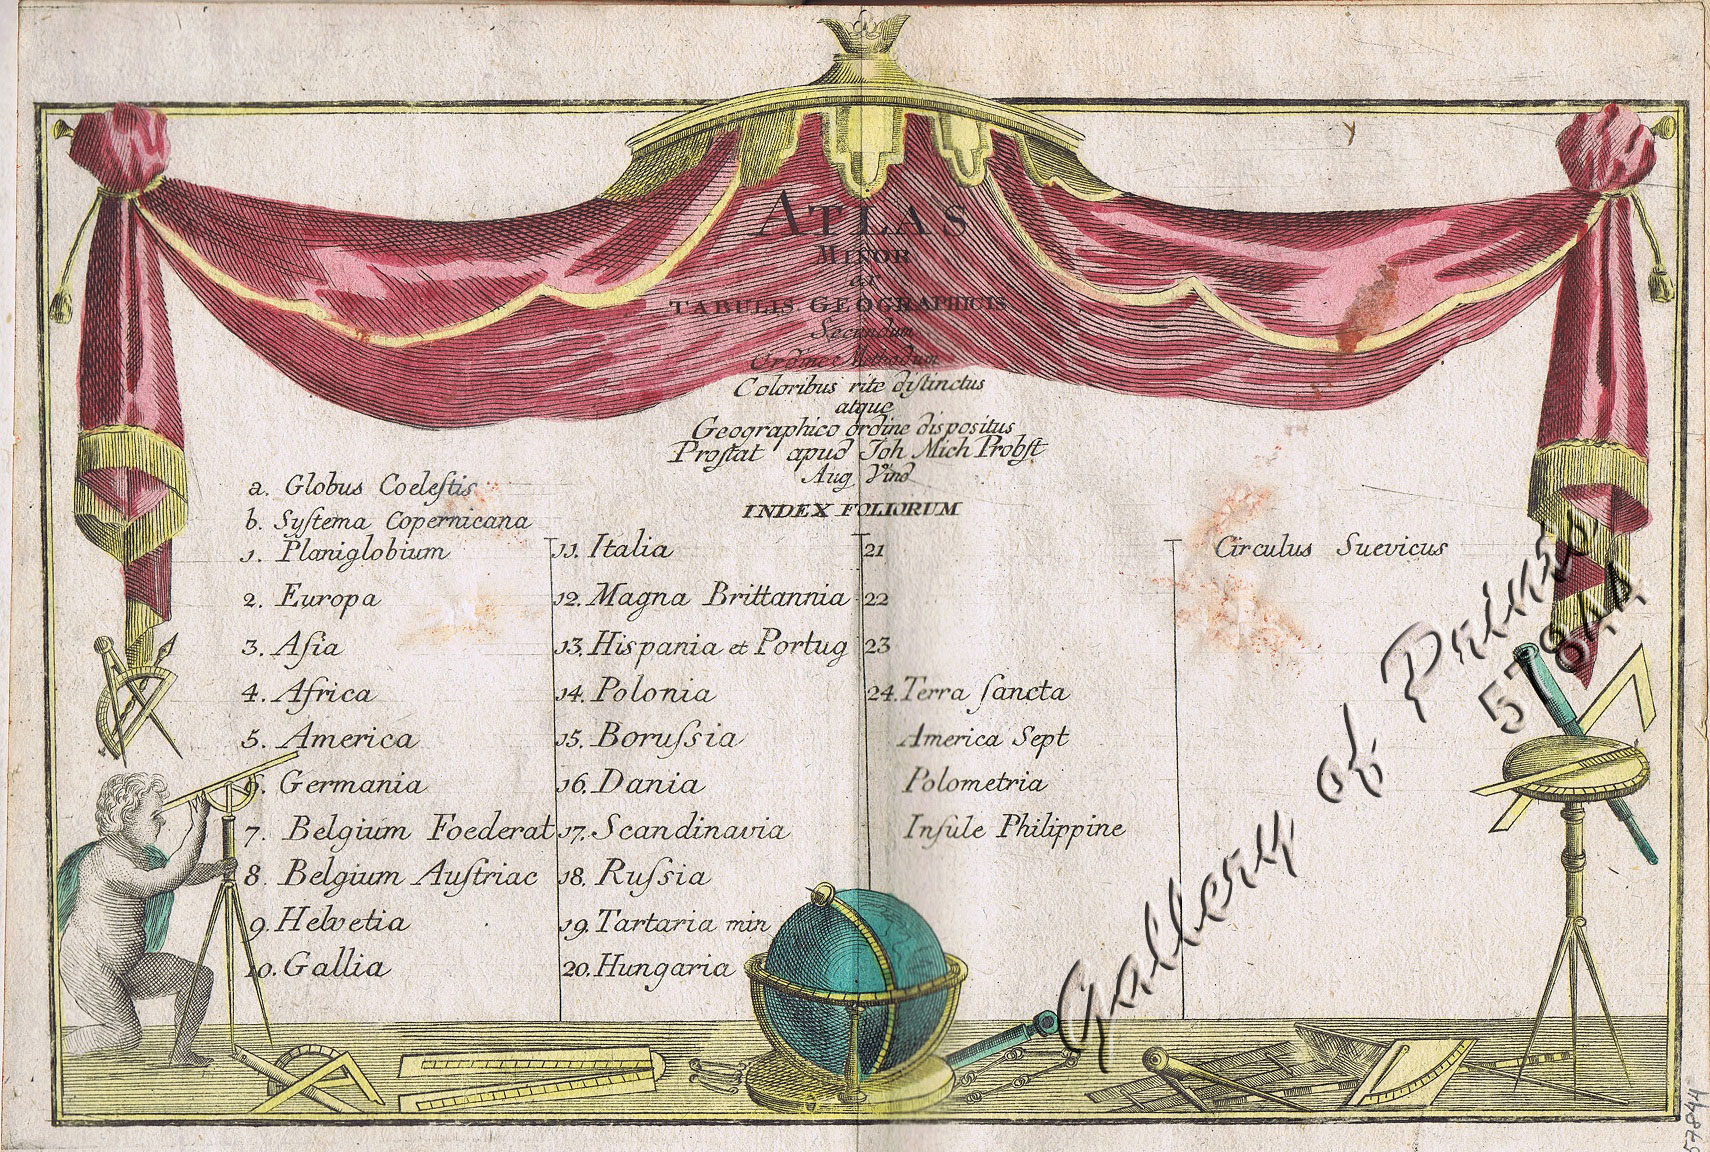 ATLAS
MINOR
ex
TABULIS GEOGRAPHICIS
Secundum
Methodum
Coloribus rite distinctus
atque
Geographico ordine dispositus
Prostat apud Joh Mich Probst
Aug Vind
INDEX FOLIORUM
a. Globus Coelestis
b. Systema Copernicana
1. Planiglobium
2. Europa
3. Asia
4. Africa
5. America
6. Germania
7. Belgium Foederat
8. Belgium Austriac
9. Helvetia
10. Gallia
11. Italia
12. Magna Brittannia
13. Hispania et Portug
14. Polonia
15. Borussia
16. Dania
17. Scandinavia
18. Russia
19. Tartaria min
20. Hungaria
21
22
23
24. Terra sancta
America Sept
Polometria
Insule Philippine
Circulus Suevicus
Gallery of Prints
57844
57844